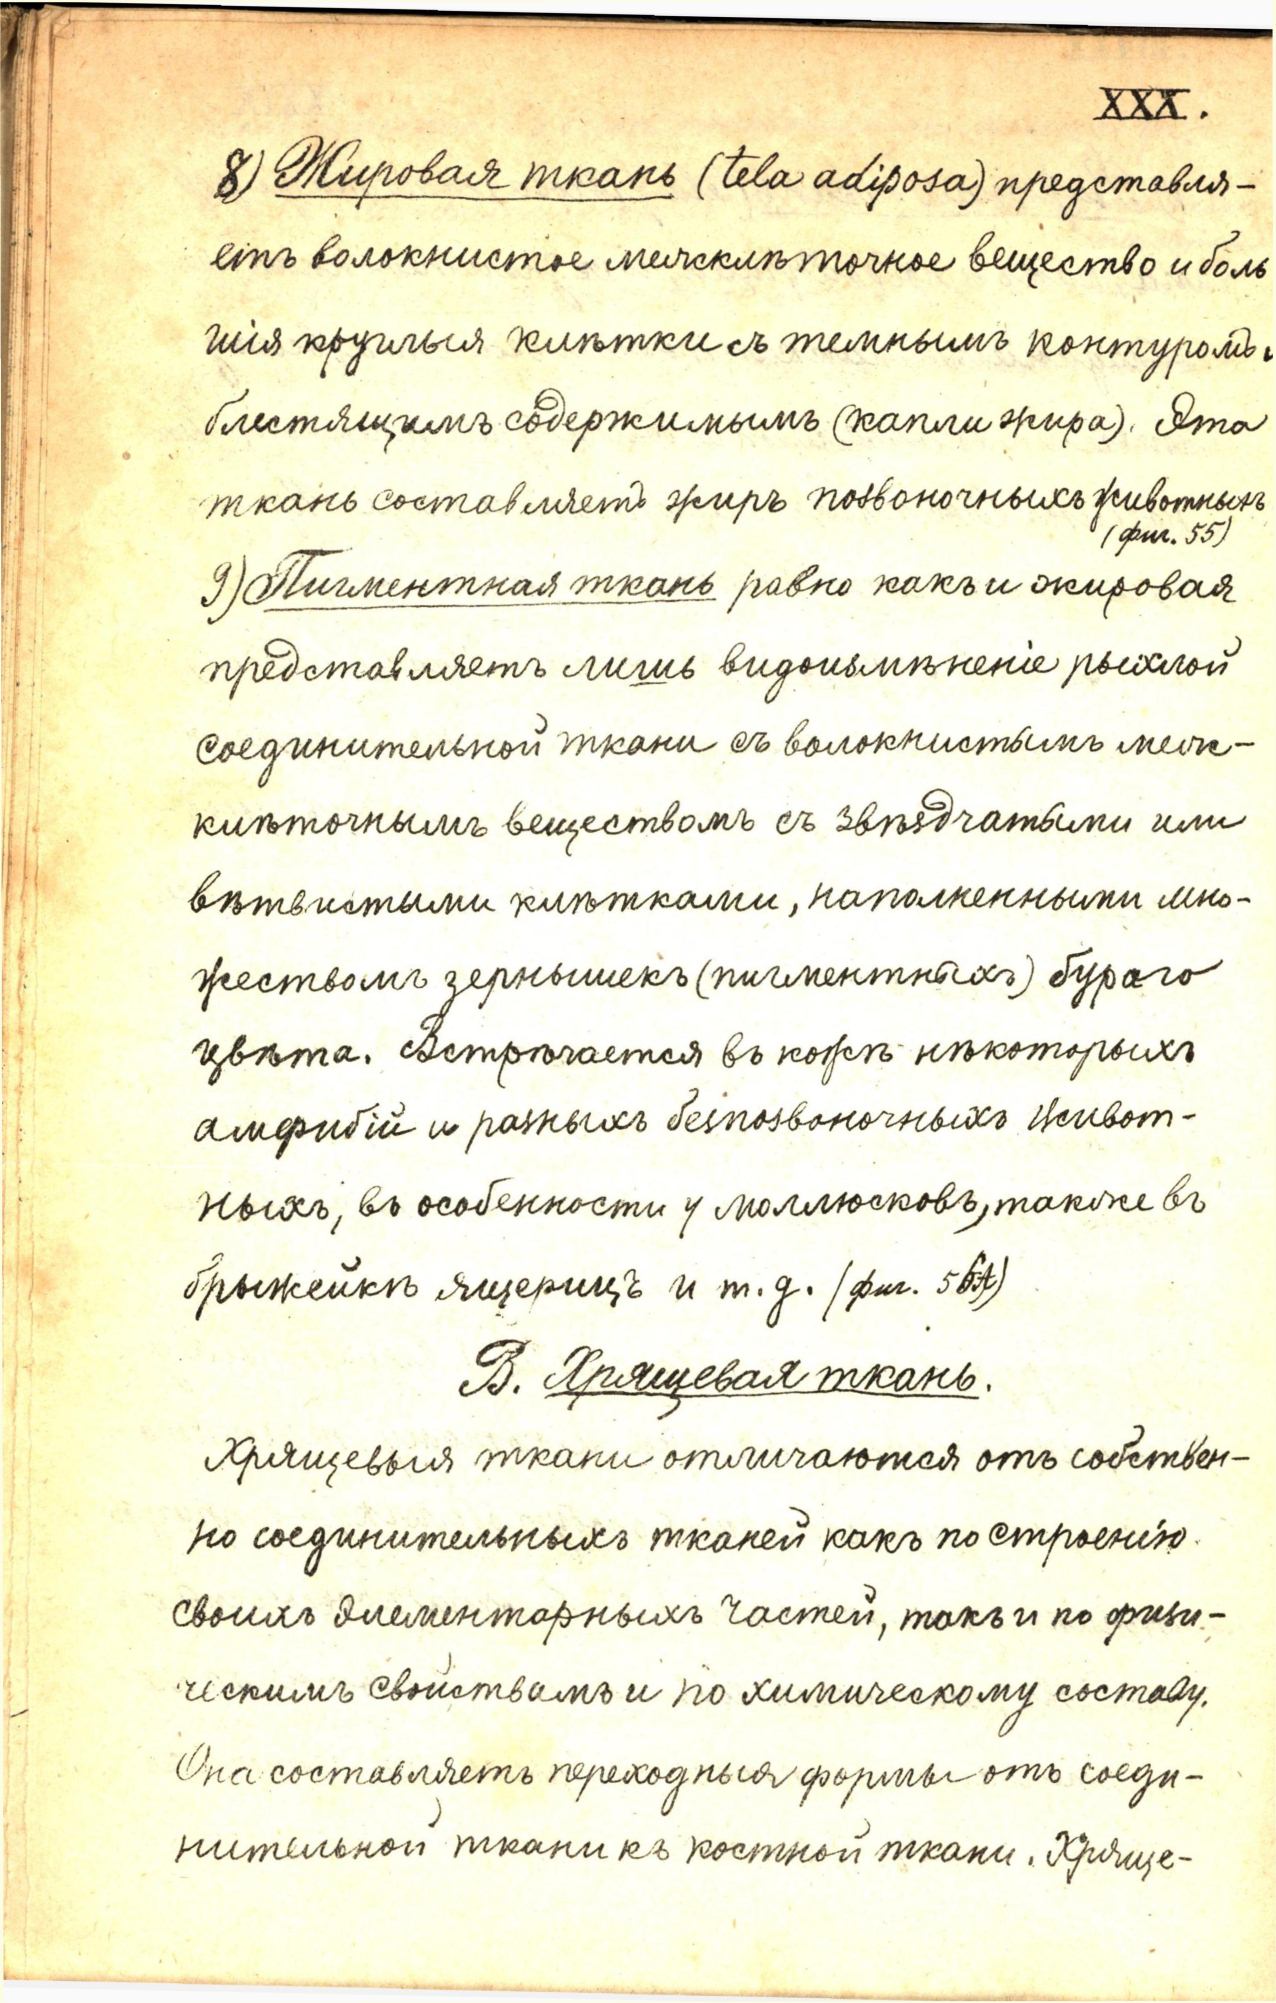 XXX.
8) Жировая ткань (tela adiposa) представля-
етъ волокнистое межклѣточное вещество и боль
шія круглыя клѣтки съ темнымъ контуромъ и
блестящимъ содержимымъ (капли жира). Эта
ткань составляетъ жиръ позвоночныхъ животныхъ
(фиг. 55)
9) Пигментная ткань равно какъ и жировая
представляетъ лишь видоизмѣненіе рыхлой
соединительной ткани съ волокнистымъ меж-
клѣточнымъ веществомъ съ звѣздчатыми или
вѣтвистыми клѣтками, наполненными мно-
жествомъ зернышекъ (пигментныхъ) бураго
цвѣта. Встрѣчается въ кожѣ нѣкоторыхъ
амфибій и разныхъ безпозвоночныхъ живот-
ныхъ, въ особенности у моллюсковъ, также въ
брыжейкѣ ящерицъ и т. д. (фиг. 56А)
В. Хрящевая ткань.
Хрящевыя ткани отличаются отъ собствен-
но соединительныхъ тканей какъ по строенію
своихъ элементарныхъ частей, такъ и по физи-
ческимъ свойствамъ и по химическому составу.
Она составляетъ переходныя формы отъ соеди-
нительной ткани къ костной ткани. Хряще-